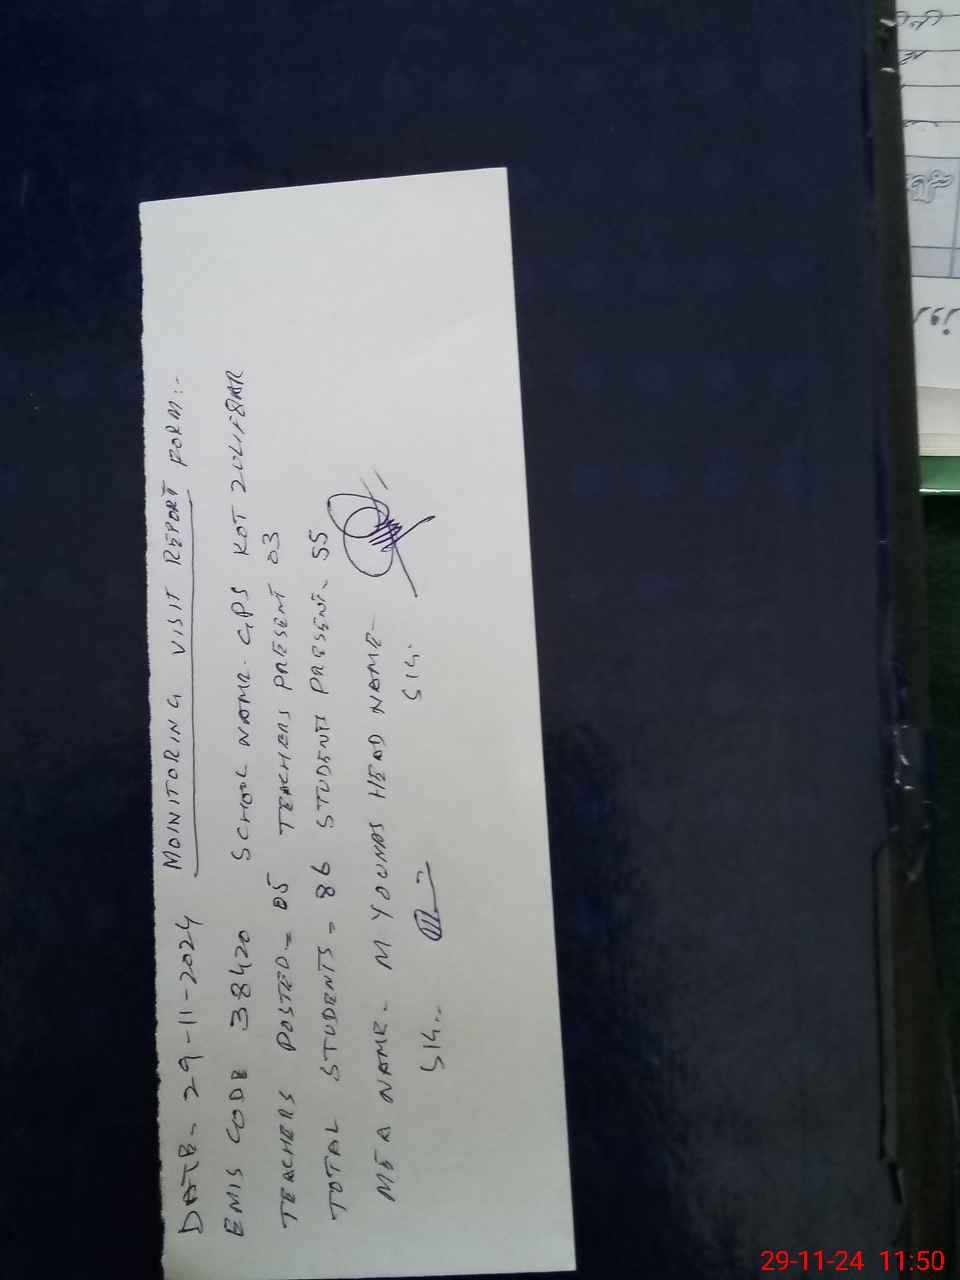 DATE- 29-11-2024 MOINITORING VISIT REPORT FORM:-
EMIS CODE 38420 SCHOOL NAME. GPS KOT ZULIFQAR
TEACHERS POSTED- 05 TEACHERS PRESENT 03
TOTAL STUDENTS- 86 STUDENTS PRESENT- 55
MEA NAME- M YOUNAS HEAD NAME-
SIG.. SIG.
روز
29-11-24 11:50